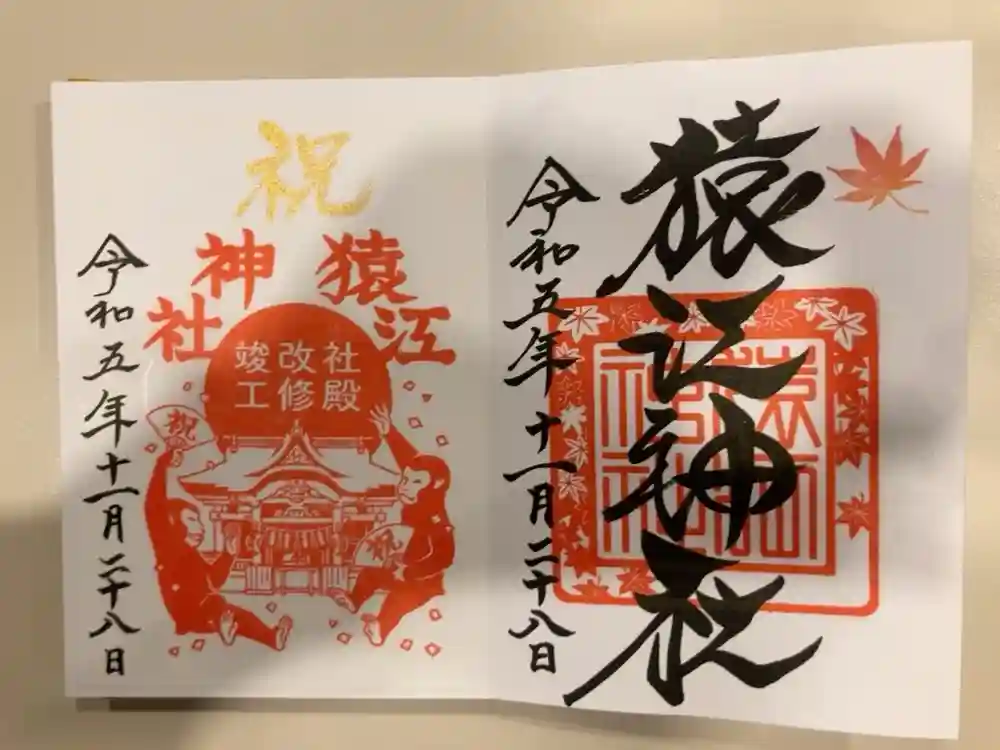 猿江神社
令和五年十一月二十八日
祝
猿江神社
社殿
改修
竣工
祝
祝
令和五年十一月二十八日